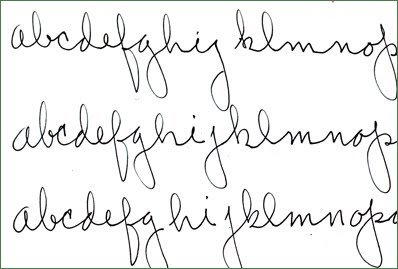 abcdefghij klmnop
abcdefghijklmnop
abcdefg hi jklmnop